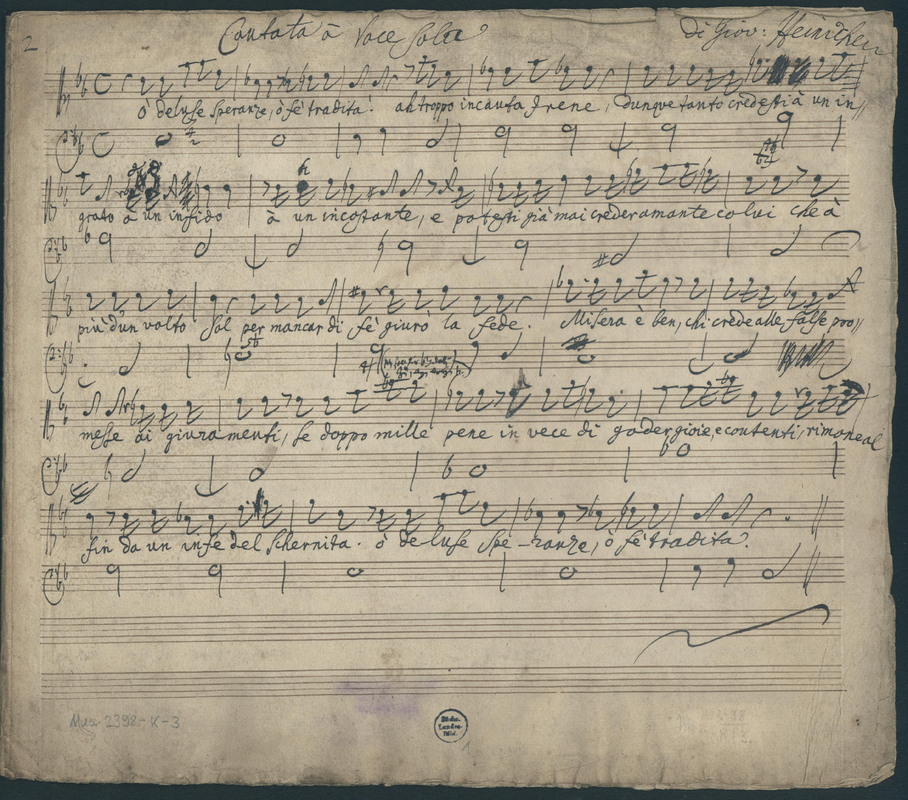 2
Cantata à Voce Sola
di Giov: Heinichen
O deluse speranze, ò fè tradita! ah troppo incauta Irene, dunque tanto credesti à un in//
grato à un infido à un incostante, e potesti già mai creder amante colui che à
più d'un volto Sol per mancar di fè giurò la fede. Misera è ben, chi crede alle false pro//
messe ai giuramenti, se doppo mille pene in vece di goder gioie, e contenti, rimane al
fin da un infedel schernita. ò deluse spe-ranze, ò fè tradita.
Mus. 2398-K-3
Sächs.
Landes-
Bibl.
1